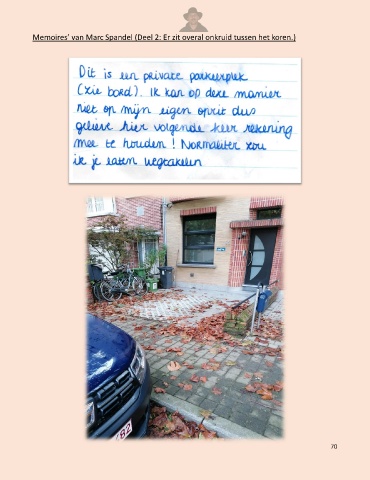 Memoires' van Marc Spandel (Deel 2: Er zit overal onkruid tussen het koren.)
Dit is een private parkeerplek
(zie bord). Ik kan op deze manier
niet op mijn eigen oprit dus
gelieve hier volgende keer rekening
mee te houden! Normaliter zou
ik je laten wegtakelen
70